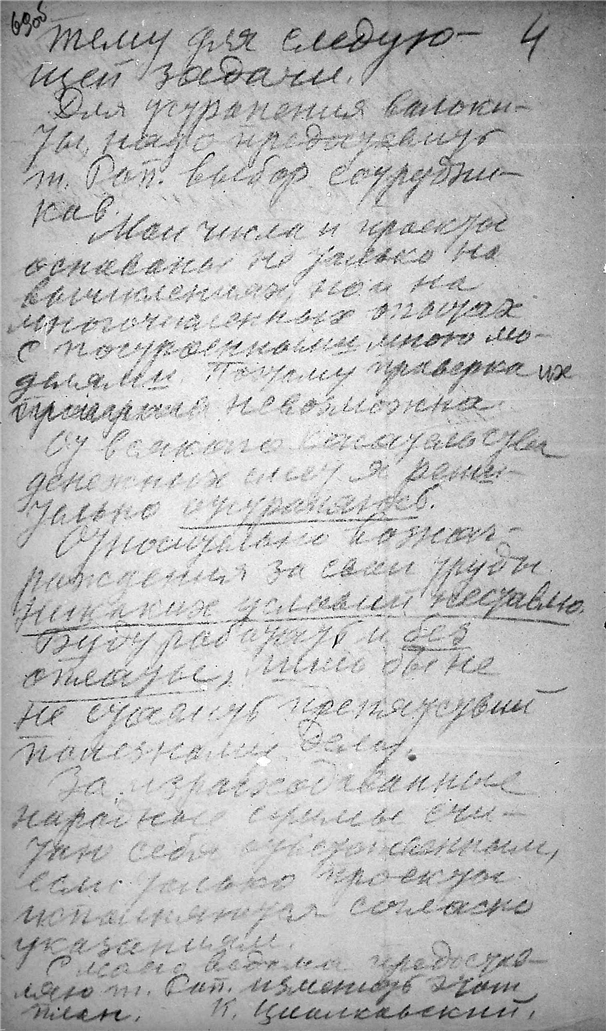 690б
4
тему для следую-
щей задачи.
Для устранения волоки-
ты, надо предоставить
т. Рап. выбор сотрудни-
ков.
Мои числа и проекты
основаны не только на
вычислениях, но и на
многочисленных опытах
с построенными мною мо-
делями. Потому проверка их
невозможна.
От всякого
денежных смет я реши-
тельно отстраняюсь.
Относительно вознаг-
раждения за свои труды
никаких условий не ставлю.
Буду работать и без
платы, лишь бы не
не ставить препятствий
полезному делу.
За израсходованные
народные суммы счи-
таю себя ответственным,
если только проекты
исполняются согласно
указаниям.
С моего ведома предостав-
ляю т. Рап. изменить этот
план. К. Циолковский.